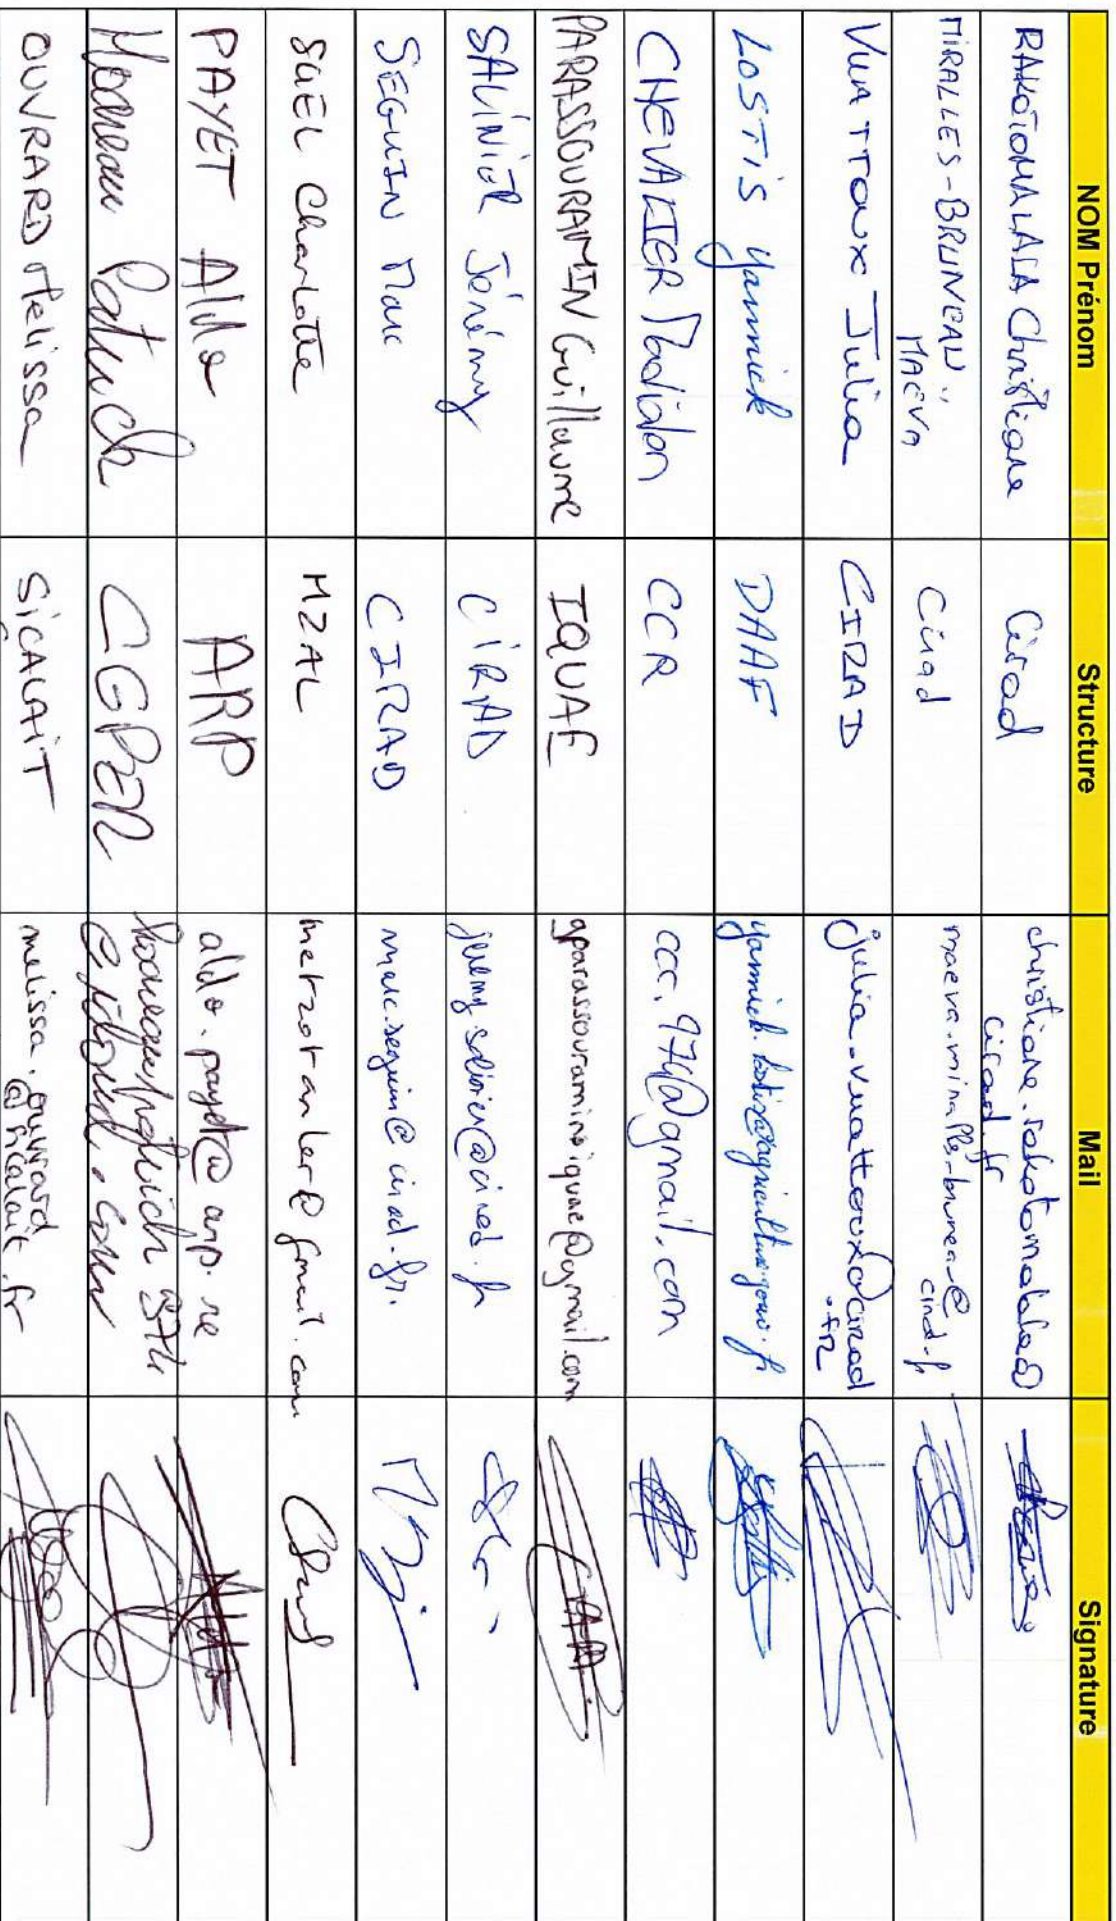 NOM Prénom Structure Mail Signature
RAKOTOMALALA Christiane Cirad christiane.rakotomalala@
cirad.fr
MIRALLES-BRUNEAU Cirad maeva.miralles-bruneau@
MAËVA cirad.fr
VUATTOUX Julia CIRAD julia.vuattoux@cirad
.fr
LOSTIS Yannick DAAF yannick.lostis@agriculture.gouv.fr
CHEVALIER CCR ccc.974@gmail.com
PARASSOURAMIN Guillaume IQUAE gparassouraminiquae@gmail.com
SALINIER Jérémy CIRAD jeremy.salinier@cirad.fr
SEGUIN Marc CIRAD marc.seguin@cirad.fr.
SAEL Charlotte MZAL metzotanler@gmail.com
PAYET Aldo ARP aldo.payet@arp.re
Hoareau Patrick CGPER hoareaupatrick974
@icloud.com
OUVRARD Melissa SICALAIT melissa.ouvrard
@sicalait.fr